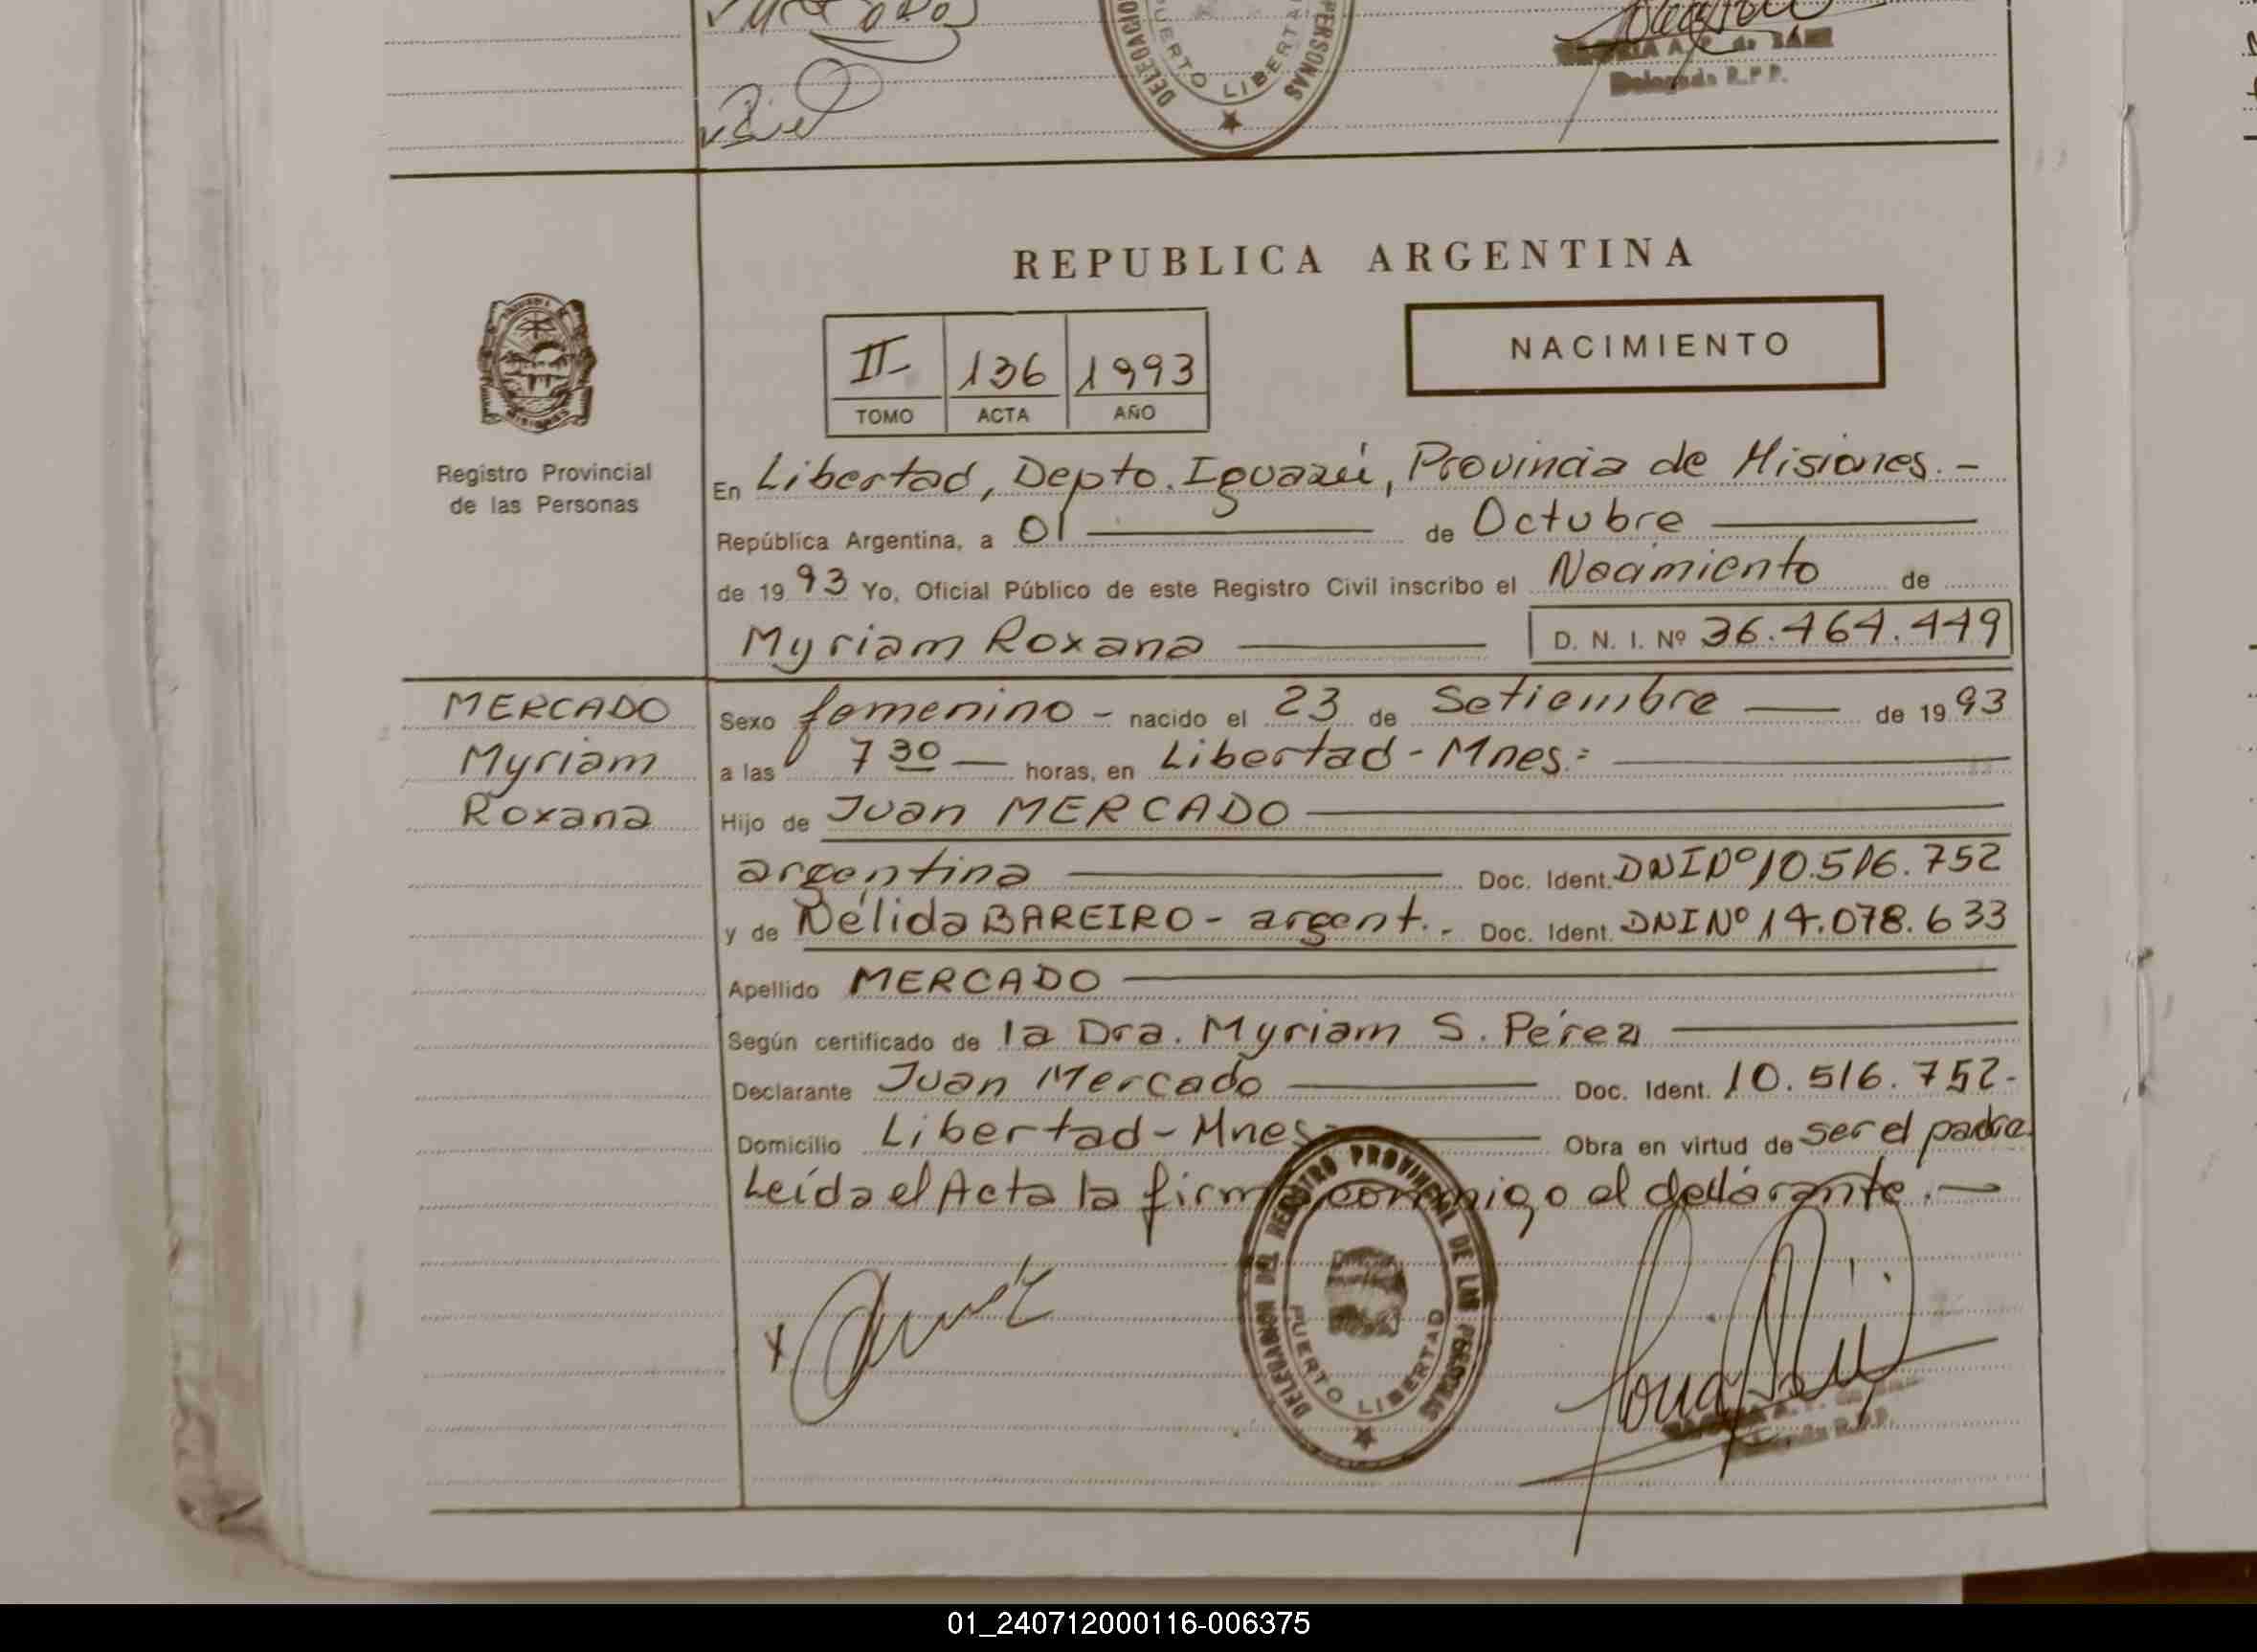 DELEGACION
PERSONAS
PUERTO LIBERTAD
Delegada R.P.P.
REPUBLICA ARGENTINA
II
136
1993
TOMO
ACTA
AÑO
NACIMIENTO
Registro Provincial
de las Personas
En Libertad, Depto. Iguazú, Provincia de Misiones.-
República Argentina, a 01 de Octubre
de 1993 Yo, Oficial Público de este Registro Civil inscribo el Nacimiento de
Myriam Roxana D. N. I. Nº 36.464.449
MERCADO
Myriam
Roxana
Sexo femenino - nacido el 23 de Setiembre de 1993
a las 7 30 horas, en Libertad - Mnes.-
Hijo de Juan MERCADO
argentina Doc. Ident. DNI Nº 10.516.752
y de Nélida BAREIRO - argent. - Doc. Ident. DNI Nº 14.078.633
Apellido MERCADO
Según certificado de la Dra. Myriam S. Pérez
Declarante Juan Mercado Doc. Ident. 10.516.752-
Domicilio Libertad - Mnes- Obra en virtud de ser el padre
Leída el Acta la firma conmigo el declarante.-
DELEGACION DEL REGISTRO PROVINCIAL DE LAS PERSONAS
PUERTO LIBERTAD
01_240712000116-006375